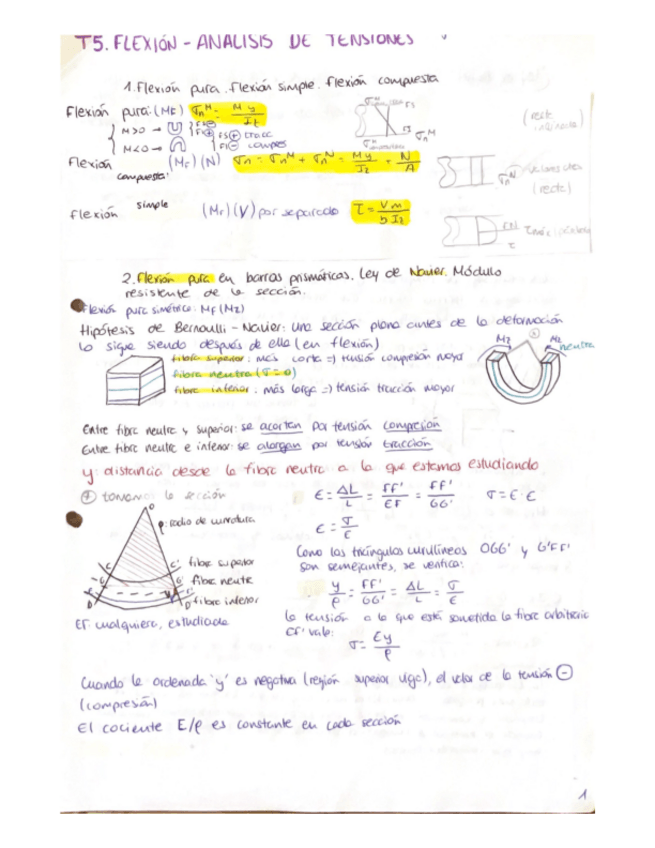 T5. FLEXIÓN - ANALISIS DE TENSIONES
1. Flexión pura. Flexión simple. Flexión compuesta
Flexión pura: (MF) σn^M = My / Iz
M>0 →
M<0 →
FS⊕ tracc
FI⊖ compres
Flexión compuesta: (MF) (N) σn = σn^M + σn^N = My / Iz + N / A
(recta inclinada)
(recta)
Flexión simple (MF) (V) por separado τ = V m / b Iz
2. Flexión pura en barras prismáticas. Ley de Navier. Módulo
resistente de la sección.
Flexión pura simétrica: MF (Mz)
Hipótesis de Bernoulli - Navier: Una sección plana antes de la deformación
lo sigue siendo después de ella (en flexión)
fibra superior: más corta => tensión compresión mayor
fibra neutra (σ=0)
fibra inferior: más larga => tensión tracción mayor
Mz
Mz
neutra
Entre fibra neutra y superior: se acortan por tensión compresión
Entre fibra neutra e inferior: se alargan por tensión tracción
y: distancia desde la fibra neutra a la que estamos estudiando
tomamos la sección
O
ρ: radio de curvatura
C C' fibra superior
G G' fibra neutra
D D' fibra inferior
EF cualquiera, estudiada
ε = ΔL / L = FF' / EF = FF' / GG' σ = ε · E
ε = σ / E
Como los triángulos curvilíneos OGG' y G'FF'
son semejantes, se verifica:
y / ρ = FF' / GG' = ΔL / L = σ / E
la tensión a la que está sometida la fibra arbitraria
EF' vale:
σ = Ey / ρ
Cuando la ordenada 'y' es negativa (región superior viga), el valor de la tensión ⊖
(compresión)
El cociente E/ρ es constante en cada sección
1